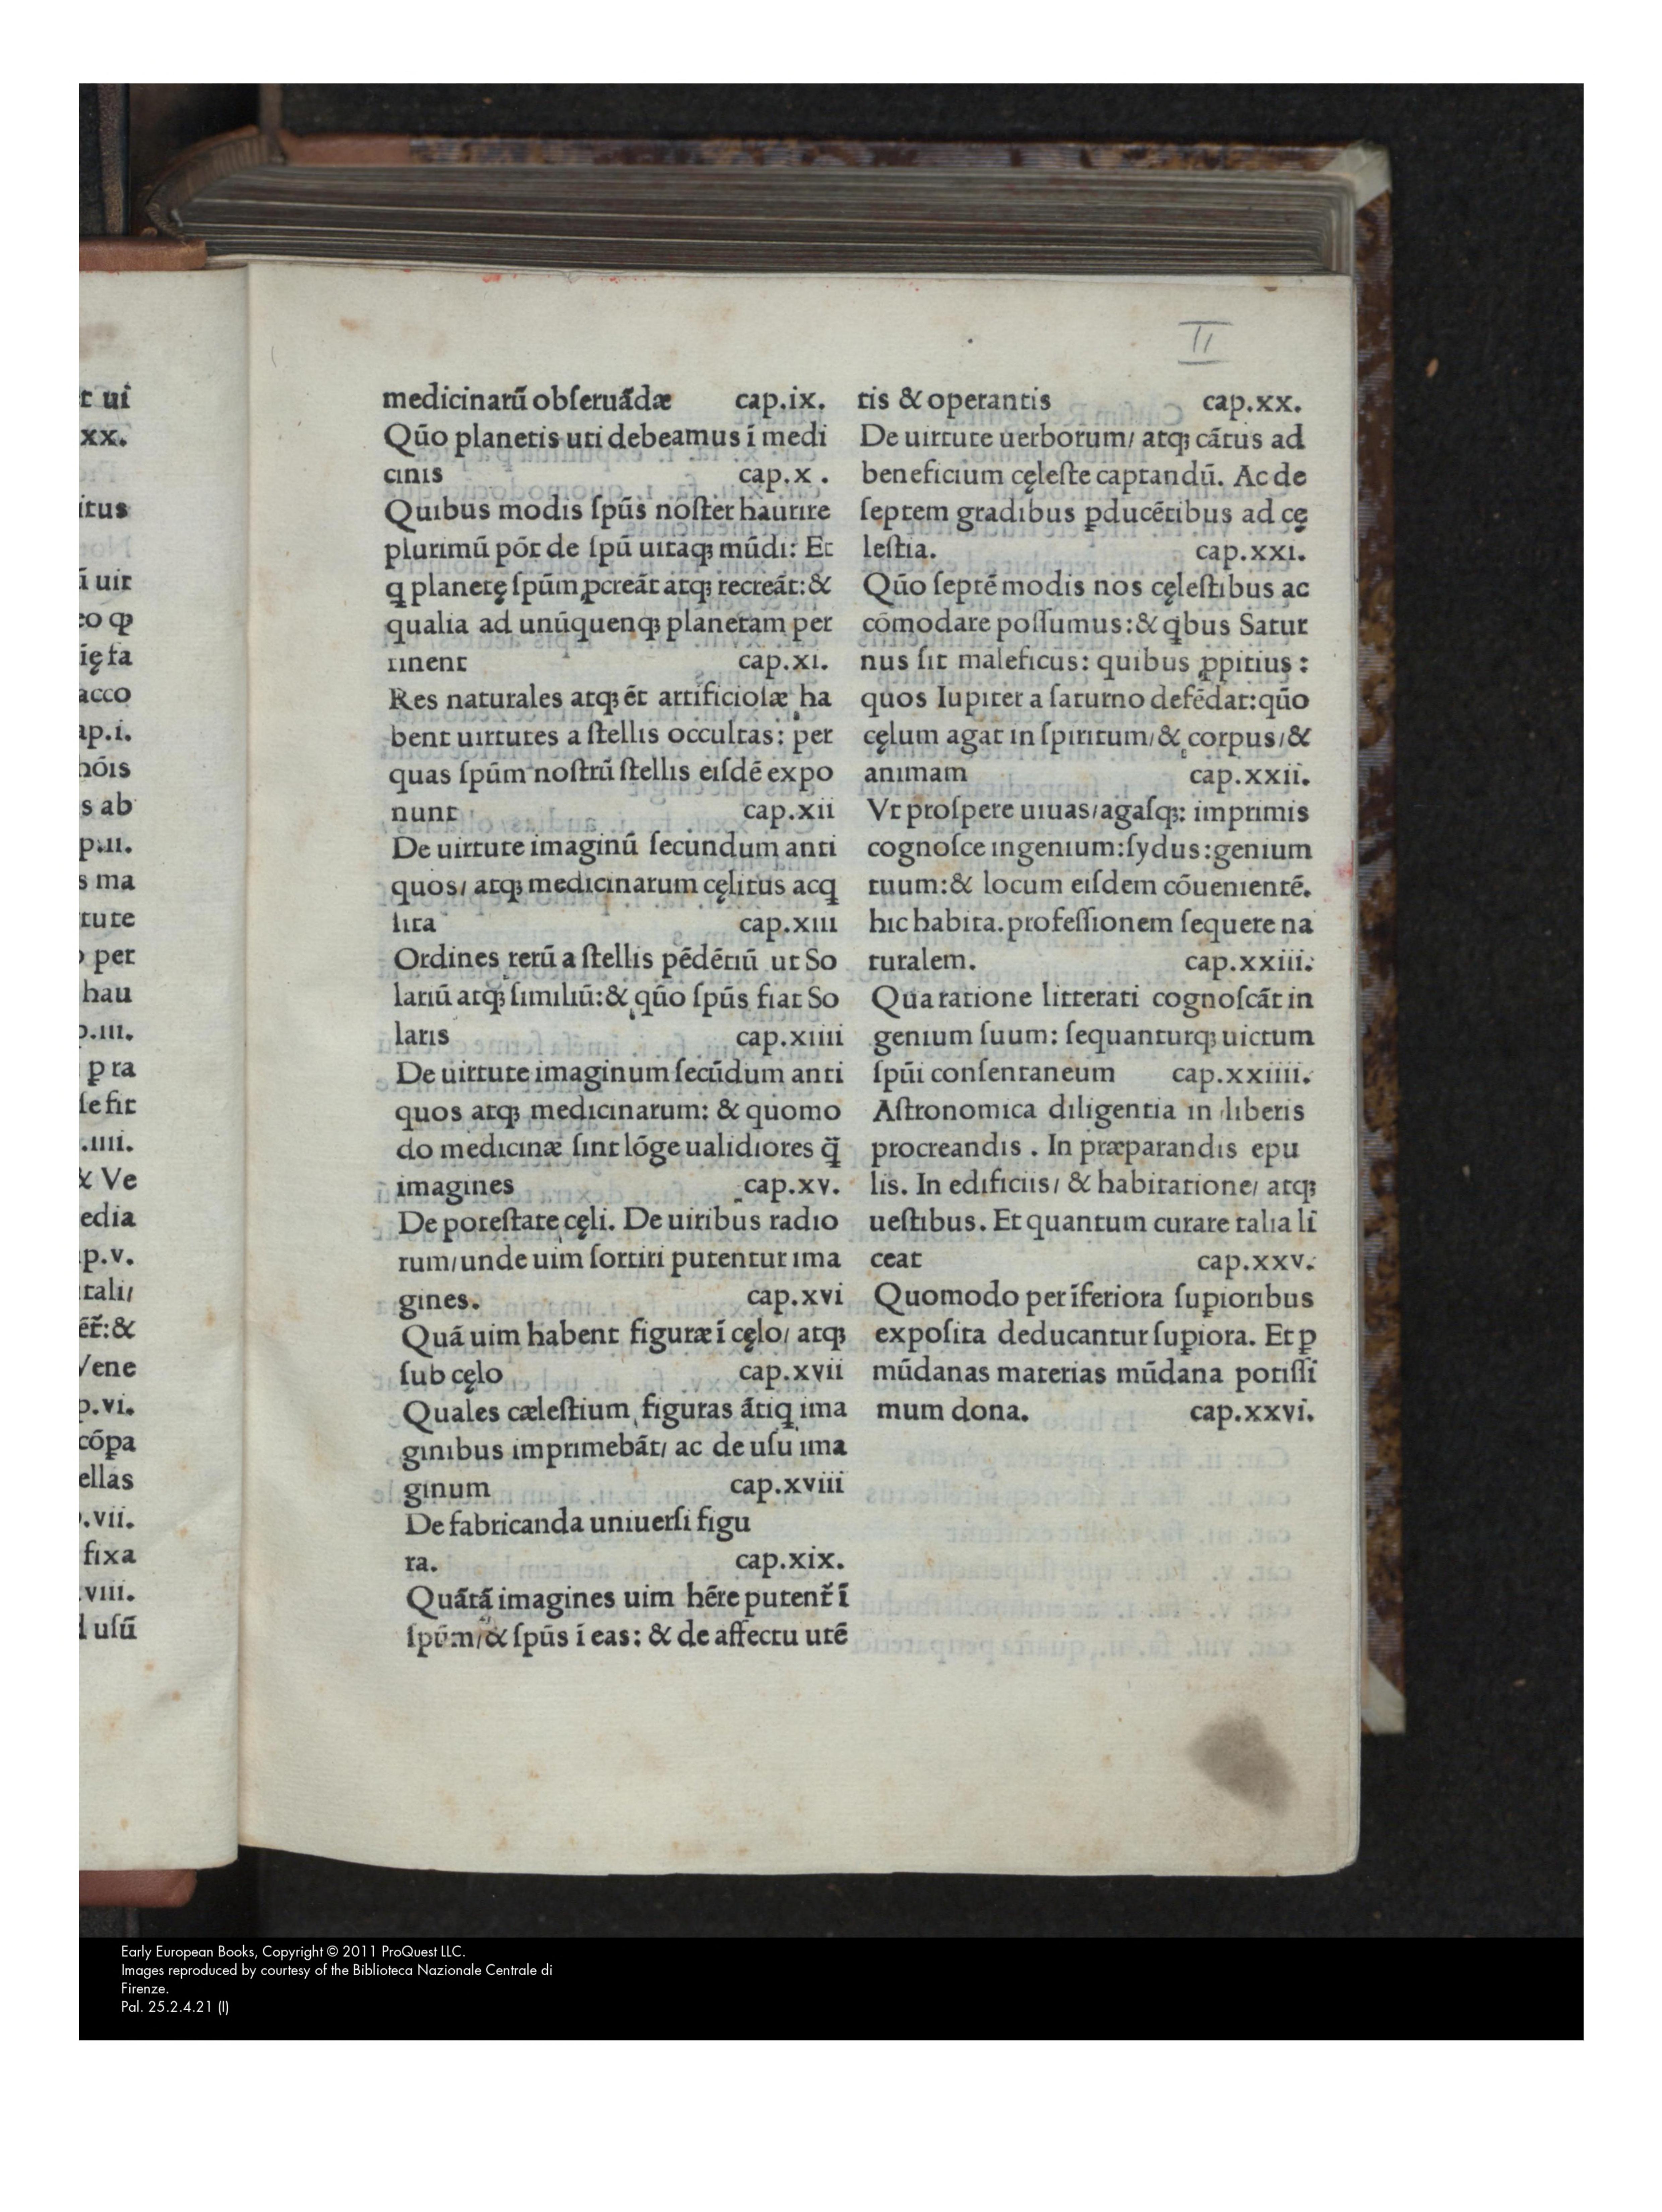 t ui
xx.
itus
ĩ uir
eo ꝙ
ię fa
acco
ap.i.
nõis
s ab
p.ii.
s ma
tute
per
hau
p.iii.
ꝑ ta
ſe fit
.iiii.
& Ve
edia
p.v.
tali/
&
Vene
p.vi.
cõpa
ellas
.vii.
fixa
viii.
uſũ
II
medicinarũ obſeruãdæ cap.ix.
Qũo planetis uti debeamus ĩ medi
cinis cap.x .
Quibus modis ſpũs nõſter haurire
plurimũ põt de ſpũ uitaqꝫ mũdi: Et
q planetę ſpũm ꝓcreãt atqꝫ recreãt: &
qualia ad unũquenqꝫ planetam per
tinent cap.xi.
Res naturales atqꝫ ẽt artificioſæ ha
bent uirtutes a ſtellis occultas: per
quas ſpũm noſtrũ ſtellis eiſdẽ expo
nunt cap.xii
De uirtute imaginũ ſecundum anti
quos/ atqꝫ medicinarum cęlitus acq
ſita cap.xiii
Ordines rerũ a ſtellis pẽdẽtiũ ut So
lariũ atqꝫ ſimiliũ: & qũo ſpũs fiat So
laris cap.xiiii
De uirtute imaginum ſecũdum anti
quos atqꝫ medicinarum: & quomo
do medicinæ ſint lõge ualidiores q̃
imagines cap.xv.
De poteſtate cęli. De uiribus radio
rum/unde uim ſortiri putentur ima
gines. cap.xvi
Quã uim habent figuræ ĩ cęlo/ atqꝫ
ſub cęlo cap.xvii
Quales cæleſtium figuras ãtiq ima
ginibus imprimebãt/ ac de uſu ima
ginum cap.xviii
De fabricanda uniuerſi figu
ra. cap.xix.
Quãtã imagines uim hẽre putent̃ ĩ
ſpũm/& ſpũs ĩ eas: & de affectu utẽ
tis & operantis cap.xx.
De uirtute uerborum/ atqꝫ cãtus ad
beneficium cęleſte captandũ. Ac de
ſeptem gradibus ꝑducẽtibus ad cę
leſtia. cap.xxi.
Qũo ſeptẽ modis nos cęleſtibus ac
cõmodare poſſumus: & qbus Satur
nus ſit maleficus: quibus ꝓpitius :
quos Iupiter a ſaturno defẽdat: qũo
cęlum agat in ſpiritum/& corpus/&
animam cap.xxii.
Vt proſpere uiuas/agaſqꝫ: imprimis
cognoſce ingenium: ſydus: genium
tuum: & locum eiſdem cõuenientẽ.
hic habita. profeſſionem ſequere na
turalem. cap.xxiii.
Qua ratione litterati cognoſcãt in
genium ſuum: ſequanturqꝫ uictum
ſpũi conſentaneum cap.xxiiii.
Aſtronomica diligentia in liberis
procreandis . In præparandis epu
lis. In edificiis/ & habitatione/ atqꝫ
ueſtibus. Et quantum curare talia li
ceat cap.xxv.
Quomodo per ĩferiora ſuꝑioribus
expoſita deducantur ſuꝑiora. Et ꝑ
mũdanas materias mũdana potiſſi
mum dona. cap.xxvi.
Early European Books, Copyright © 2011 ProQuest LLC.
Images reproduced by courtesy of the Biblioteca Nazionale Centrale di
Firenze.
Pal. 25.2.4.21 (I)